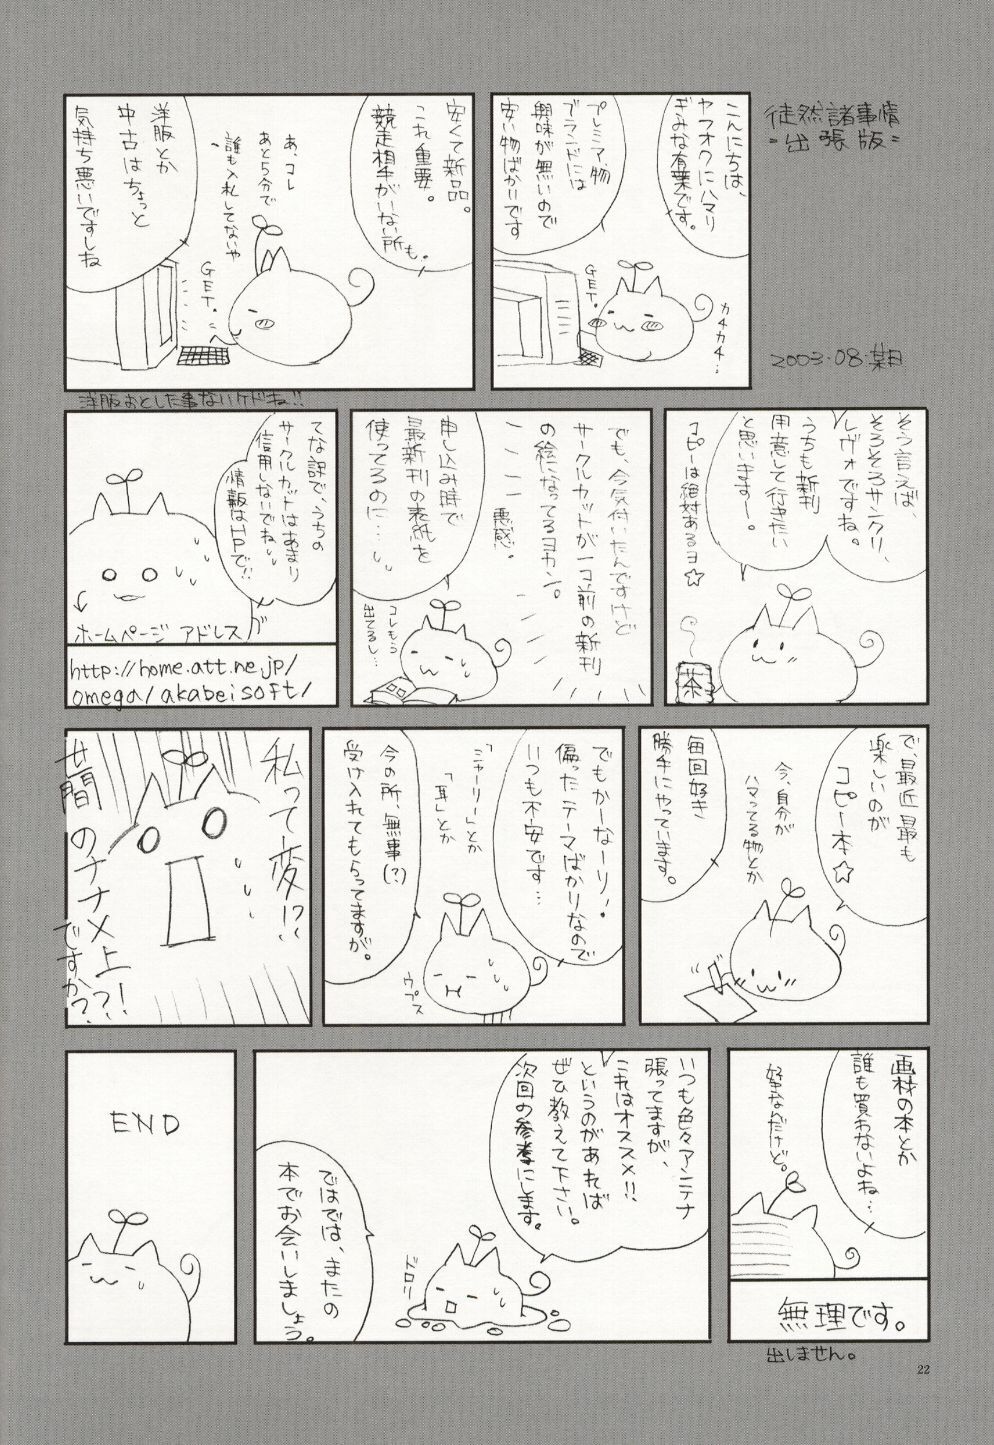 徒然諸事情
=出張版=
2003.08.某日
こんにちは、
ヤフオクにハマリ
ぎみな有葉です。
プレミア物や
ブランドには
興味が無いので
安い物ばかりです
GET。
カチカチ…
安くて新品。
これ重要。
競走相手がいない所も。
あ、コレ
あと5分で
誰も入札してないや
GET。
洋服とか
中古はちょっと
気持ち悪いですしね
洋服おとした事ないケドね!!
そう言えば、
そろそろサンクリ、
レヴォですね。
うちも新刊
用意して行きたい
と思いますー。
コピーは絶対あるヨ☆
茶
でも、今気付いたんですけど
サークルカットが一コ前の新刊
の絵になってるヨカン。
悪感。
申し込み時で
最新刊の表紙を
使ってるのに…
コレもう
出てるし…
てな訳で、うちの
サークルカットはあまり
信用しないでね
情報はHPで!!
ホームページ アドレス
http://home.att.ne.jp/
omega/akabeisoft/
で、最近最も
楽しいのが
コピー本☆
今、自分が
ハマってる物とか
毎回好き
勝手にやっています。
でもかーなーリ!
偏ったテーマばかりなので
いつも不安です…
「ニャーリー」とか
「耳」とか
今の所、無事(?)
受け入れてもらってますが。
ウプス
私って変!?
世間のナナメ上
ですか??!
画材の本とか
誰も買わないよね…
好きなんだけど。
無理です。
出しません。
いつも色々アンテナ
張ってますが、
これはオススメ!!
というのがあれば
ぜひ教えて下さい。
次回の参考にします。
ドロリ
ではでは、またの
本でお会いしましょう。
END
22